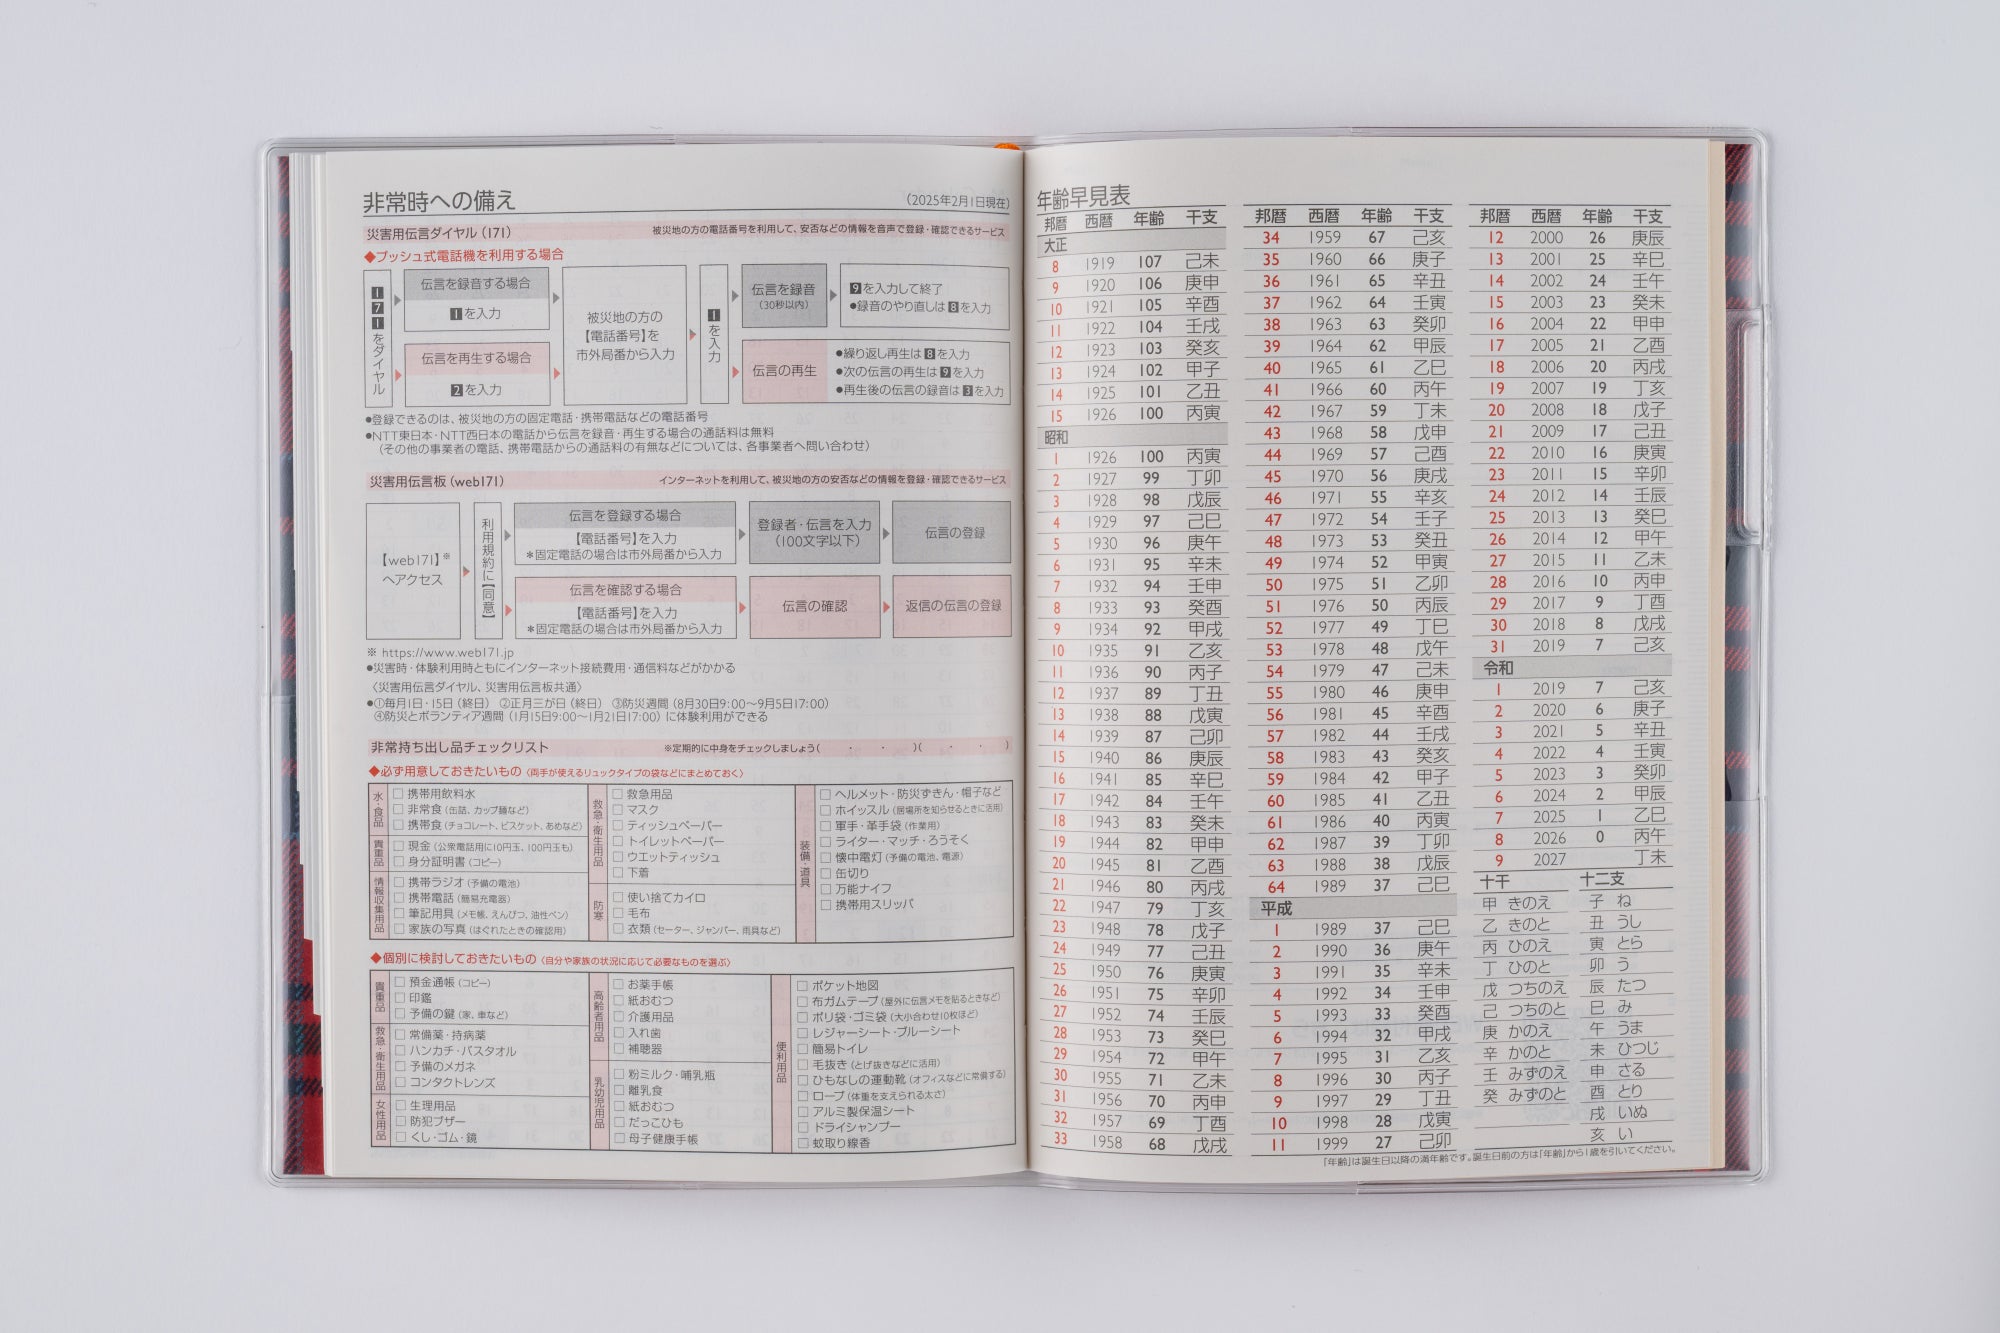 非常時への備え
(2025年2月1日現在)
災害用伝言ダイヤル (171)
被災地の方の電話番号を利用して、安否などの情報を音声で登録・確認できるサービス
◆プッシュ式電話機を利用する場合
171をダイヤル
伝言を録音する場合
1を入力
伝言を再生する場合
2を入力
被災地の方の
【電話番号】を
市外局番から入力
1を入力
伝言を録音
(30秒以内)
9を入力して終了
●録音のやり直しは8を入力
伝言の再生
●繰り返し再生は8を入力
●次の伝言の再生は9を入力
●再生後の伝言の録音は3を入力
●登録できるのは、被災地の方の固定電話・携帯電話などの電話番号
●NTT東日本・NTT西日本の電話から伝言を録音・再生する場合の通話料は無料
(その他の事業者の電話、携帯電話からの通話料の有無などについては、各事業者へ問い合わせ)
災害用伝言板 (web171)
インターネットを利用して、被災地の方の安否などの情報を登録・確認できるサービス
【web171】※
へアクセス
利用規約に【同意】
伝言を登録する場合
【電話番号】を入力
*固定電話の場合は市外局番から入力
登録者・伝言を入力
(100文字以下)
伝言の登録
伝言を確認する場合
【電話番号】を入力
*固定電話の場合は市外局番から入力
伝言の確認
返信の伝言の登録
※ https://www.web171.jp
●災害時・体験利用時ともにインターネット接続費用・通信料などがかかる
〈災害用伝言ダイヤル、災害用伝言板共通〉
●①毎月1日・15日 (終日) ②正月三が日 (終日) ③防災週間 (8月30日9:00〜9月5日17:00)
④防災とボランティア週間 (1月15日9:00〜1月21日17:00) に体験利用ができる
非常持ち出し品チェックリスト
※定期的に中身をチェックしましょう( ・ ・ )( ・ ・ )
◆必ず用意しておきたいもの 〈両手が使えるリュックタイプの袋などにまとめておく〉
水・食品
□ 携帯用飲料水
□ 非常食 (缶詰、カップ麺など)
□ 携帯食 (チョコレート、ビスケット、あめなど)
貴重品
□ 現金 (公衆電話用に10円玉、100円玉も)
□ 身分証明書 (コピー)
情報収集用品
□ 携帯ラジオ (予備の電池)
□ 携帯電話 (簡易充電器)
□ 筆記用具 (メモ帳、えんぴつ、油性ペン)
□ 家族の写真 (はぐれたときの確認用)
救急・衛生用品
□ 救急用品
□ マスク
□ ティッシュペーパー
□ トイレットペーパー
□ ウエットティッシュ
□ 下着
防寒
□ 使い捨てカイロ
□ 毛布
□ 衣類 (セーター、ジャンパー、雨具など)
装備・道具
□ ヘルメット・防災ずきん・帽子など
□ ホイッスル (居場所を知らせるときに活用)
□ 軍手・革手袋 (作業用)
□ ライター・マッチ・ろうそく
□ 懐中電灯 (予備の電池、電源)
□ 缶切り
□ 万能ナイフ
□ 携帯用スリッパ
◆個別に検討しておきたいもの 〈自分や家族の状況に応じて必要なものを選ぶ〉
貴重品
□ 預金通帳 (コピー)
□ 印鑑
□ 予備の鍵 (家、車など)
救急・衛生用品
□ 常備薬・持病薬
□ ハンカチ・バスタオル
□ 予備のメガネ
□ コンタクトレンズ
女性用品
□ 生理用品
□ 防犯ブザー
□ くし・ゴム・鏡
高齢者用品
□ お薬手帳
□ 紙おむつ
□ 介護用品
□ 入れ歯
□ 補聴器
乳幼児用品
□ 粉ミルク・哺乳瓶
□ 離乳食
□ 紙おむつ
□ だっこひも
□ 母子健康手帳
便利用品
□ ポケット地図
□ 布ガムテープ (屋外に伝言メモを貼るときなど)
□ ポリ袋・ゴミ袋 (大小合わせ10枚ほど)
□ レジャーシート・ブルーシート
□ 簡易トイレ
□ 毛抜き (とげ抜きなどに活用)
□ ひもなしの運動靴 (オフィスなどに常備する)
□ ロープ (体重を支えられる太さ)
□ アルミ製保温シート
□ ドライシャンプー
□ 蚊取り線香
年齢早見表
邦暦 西暦 年齢 干支
大正
8 1919 107 己未
9 1920 106 庚申
10 1921 105 辛酉
11 1922 104 壬戌
12 1923 103 癸亥
13 1924 102 甲子
14 1925 101 乙丑
15 1926 100 丙寅
昭和
1 1926 100 丙寅
2 1927 99 丁卯
3 1928 98 戊辰
4 1929 97 己巳
5 1930 96 庚午
6 1931 95 辛未
7 1932 94 壬申
8 1933 93 癸酉
9 1934 92 甲戌
10 1935 91 乙亥
11 1936 90 丙子
12 1937 89 丁丑
13 1938 88 戊寅
14 1939 87 己卯
15 1940 86 庚辰
16 1941 85 辛巳
17 1942 84 壬午
18 1943 83 癸未
19 1944 82 甲申
20 1945 81 乙酉
21 1946 80 丙戌
22 1947 79 丁亥
23 1948 78 戊子
24 1949 77 己丑
25 1950 76 庚寅
26 1951 75 辛卯
27 1952 74 壬辰
28 1953 73 癸巳
29 1954 72 甲午
30 1955 71 乙未
31 1956 70 丙申
32 1957 69 丁酉
33 1958 68 戊戌
邦暦 西暦 年齢 干支
34 1959 67 己亥
35 1960 66 庚子
36 1961 65 辛丑
37 1962 64 壬寅
38 1963 63 癸卯
39 1964 62 甲辰
40 1965 61 乙巳
41 1966 60 丙午
42 1967 59 丁未
43 1968 58 戊申
44 1969 57 己酉
45 1970 56 庚戌
46 1971 55 辛亥
47 1972 54 壬子
48 1973 53 癸丑
49 1974 52 甲寅
50 1975 51 乙卯
51 1976 50 丙辰
52 1977 49 丁巳
53 1978 48 戊午
54 1979 47 己未
55 1980 46 庚申
56 1981 45 辛酉
57 1982 44 壬戌
58 1983 43 癸亥
59 1984 42 甲子
60 1985 41 乙丑
61 1986 40 丙寅
62 1987 39 丁卯
63 1988 38 戊辰
64 1989 37 己巳
平成
1 1989 37 己巳
2 1990 36 庚午
3 1991 35 辛未
4 1992 34 壬申
5 1993 33 癸酉
6 1994 32 甲戌
7 1995 31 乙亥
8 1996 30 丙子
9 1997 29 丁丑
10 1998 28 戊寅
11 1999 27 己卯
邦暦 西暦 年齢 干支
12 2000 26 庚辰
13 2001 25 辛巳
14 2002 24 壬午
15 2003 23 癸未
16 2004 22 甲申
17 2005 21 乙酉
18 2006 20 丙戌
19 2007 19 丁亥
20 2008 18 戊子
21 2009 17 己丑
22 2010 16 庚寅
23 2011 15 辛卯
24 2012 14 壬辰
25 2013 13 癸巳
26 2014 12 甲午
27 2015 11 乙未
28 2016 10 丙申
29 2017 9 丁酉
30 2018 8 戊戌
31 2019 7 己亥
令和
1 2019 7 己亥
2 2020 6 庚子
3 2021 5 辛丑
4 2022 4 壬寅
5 2023 3 癸卯
6 2024 2 甲辰
7 2025 1 乙巳
8 2026 0 丙午
9 2027 丁未
十干 十二支
甲 きのえ 子 ね
乙 きのと 丑 うし
丙 ひのえ 寅 とら
丁 ひのと 卯 う
戊 つちのえ 辰 たつ
己 つちのと 巳 み
庚 かのえ 午 うま
辛 かのと 未 ひつじ
壬 みずのえ 申 さる
癸 みずのと 酉 とり
戌 いぬ
亥 い
「年齢」は誕生日以降の満年齢です。誕生日前の方は「年齢」から1歳を引いてください。